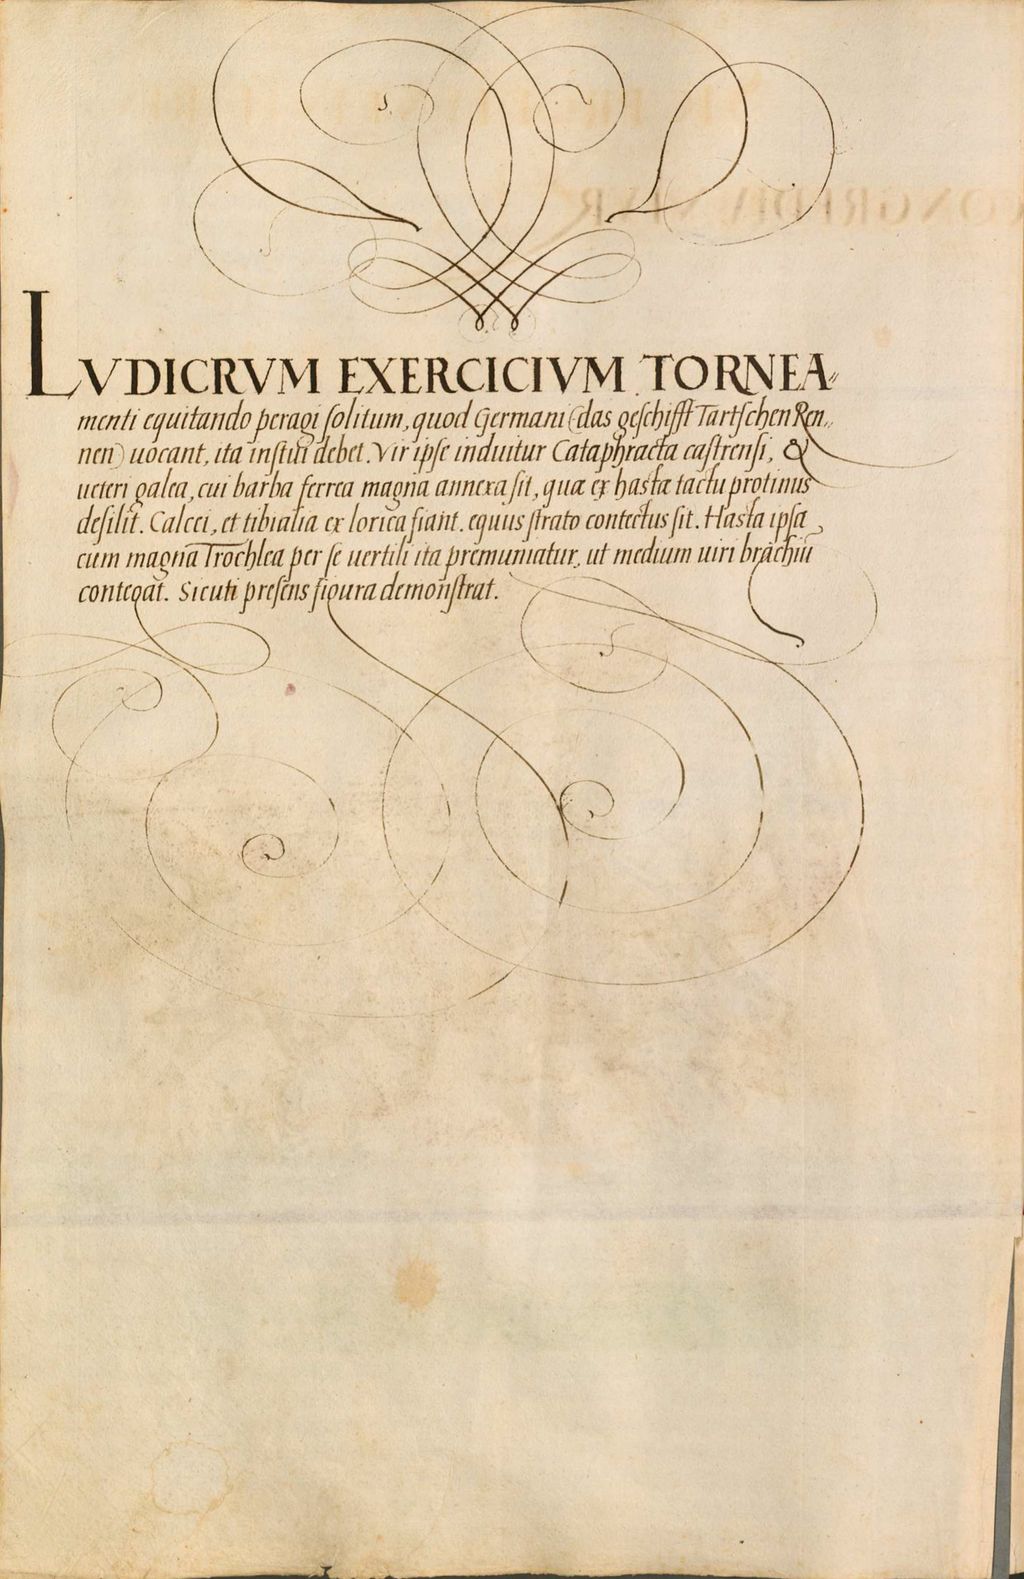 LVDICRVM EXERCICIVM TORNEA⸗
menti equitando peragi ſolitum, quod Germani (das geſchifft Tartſchen Ren⸗
nen) uocant, ita inſtũi debet. Vir ipſe induitur Cataphracta caſtrenſi, &
ueteri galea, cui barba ferrea magna annexa ſit, quæ ex hasta tactu protinus
deſilit. Calcei, et tibialia ex lorica fiant. equus ſtrato contectus ſit. Hasta ipſa
cum magna Trochlea per ſe uertili ita premuniatur, ut medium uiri brachiũ
contegat. Sicuti preſens figura demonſtrat.
CONGREDIVNTVR